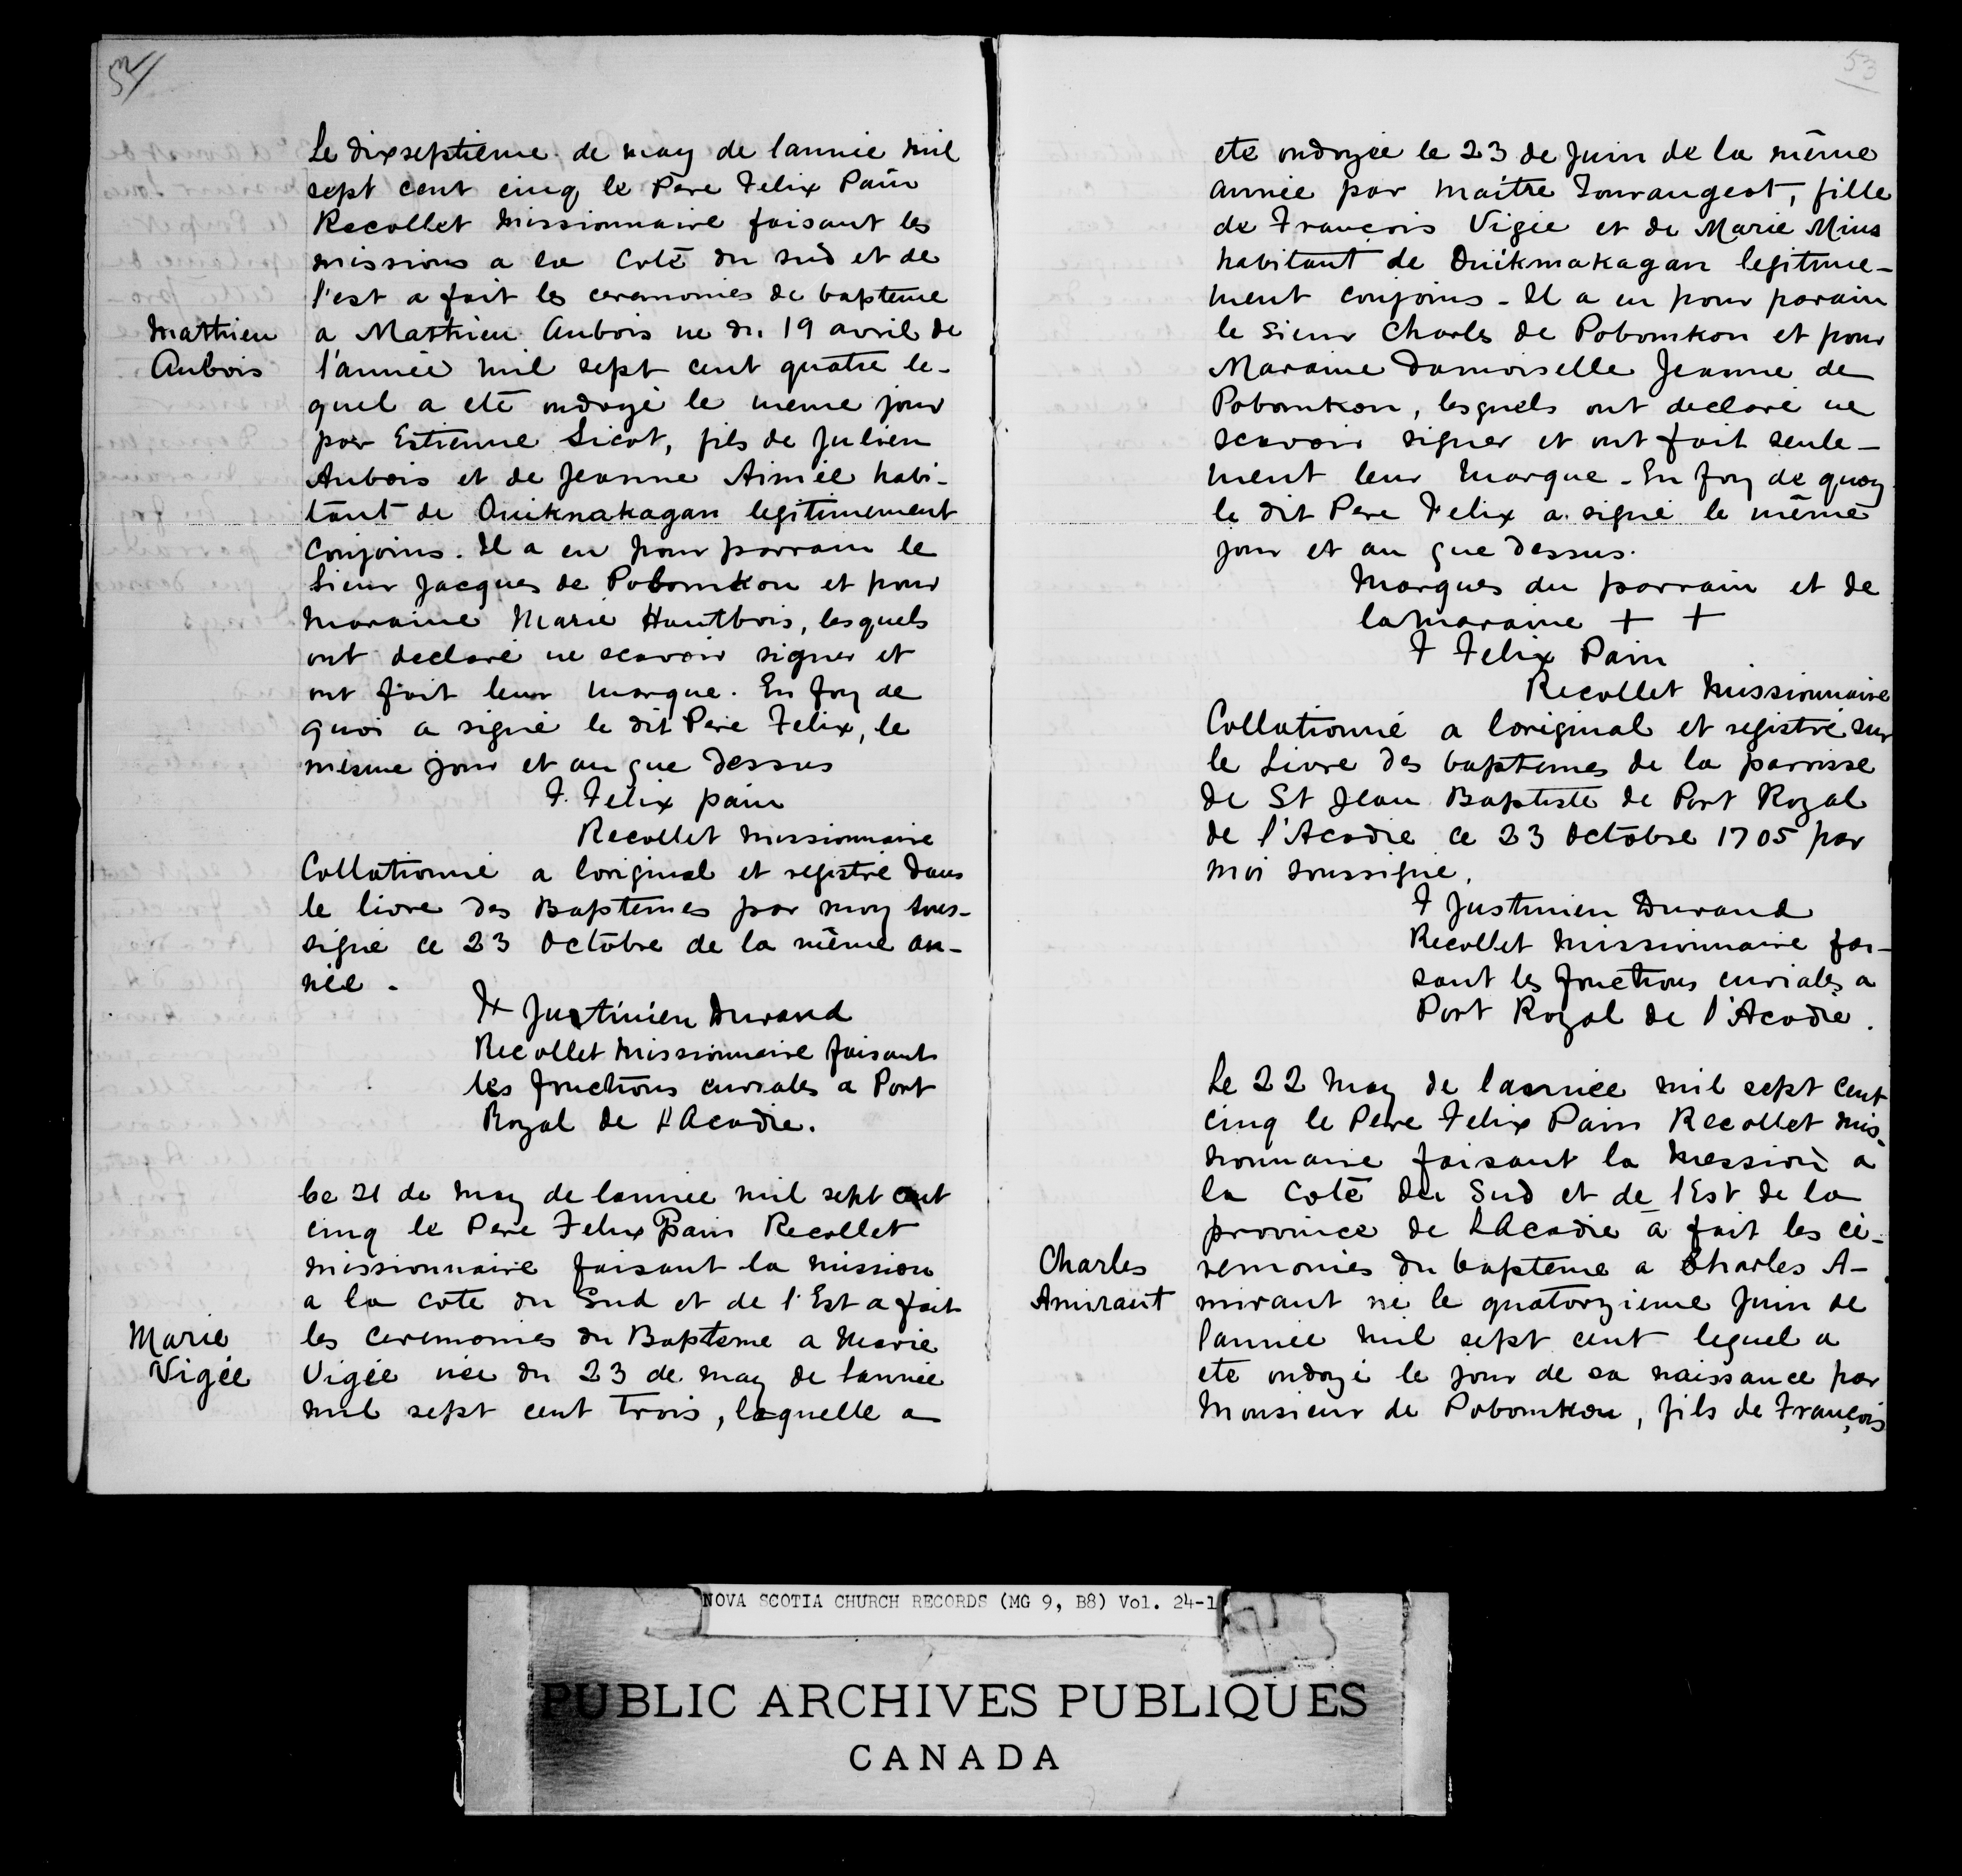 Le dixseptieme de may de lannie mil
sept cent cinq le Père Felix Pain
Recollet Missionnaire faisant les
missions a la Coté du sud et de
l'est a fait les ceremonies de bapteme
Mathieu
Aubois
a Mathieu Aubois ne du 19 avril de
l'année mil sept cent quatre le-
quel a eté ondoyé le meme jour
par Estienne Sicot, fils de Julien
Aubois et de Jeanne Aimée habi-
tant de Ouiknakagan legitimement
Conjoins. Il a eu pour parrain le
Sieur Jacques de Pobomkou et pour
maraine Marie Hautbois, lesquels
ont declaré ne scavoir signer et
ont fait leur marque. En foy de
quoi a signé le dit Pere Felix, le
mesme jour et an que Dessus
F. Felix pain
Recollet Missionnaire
Collationné a loriginal et registré dans
le livre des Baptemes par moy sous-
signé ce 23 Octobre de la même an-
née.
Fr Justinien Durand
Recollet Missionnaire faisant
les fonctions curiales a Port
Royal de L'Acadie.
Le 21 de May de lannee mil sept cent
cinq le Pere Felix Pain Recollet
missionnaire faisant la mission
a la cote du Sud et de l'Est a fait
Marie
Vigée
les ceremonies du Bapteme a Marie
Vigée née du 23 de may de lannée
mil sept cent trois, laquelle a
53
eté ondoyée le 23 de Juin de la même
année par maitre Tourangeot, fille
de François Vigée et de Marie Mius
habitant de Ouikmakagan legitime-
ment conjoins - Il a eu pour parain
le sieur Charles de Pobomkou et pour
Maraine Damoiselle Jeanne de
Pobomkou, lesquels ont declaré ne
scavoir signer et ont fait seule-
ment leur marque - En foy de quoy
le dit Pere Felix a signé le même
jour et an que dessus.
Marques du parrain et de
la maraine + +
F Felix Pain
Recollet Missionnaire
Collationné a loriginal et registré sur
le Livre des baptemes de la paroisse
de St Jean Baptiste de Port Royal
de l'Acadie ce 23 Octobre 1705 par
moi soussigné.
F Justinien Durand
Recollet Missionnaire fai-
sant les fonctions curiales a
Port Royal de l'Acadie.
Le 22 may de lannée mil sept cent
cinq le Pere Felix Pain Recollet mis-
sionnaire faisant la Mession a
la Coté du Sud et de l'Est de la
province de LAcadie a fait les cé-
Charles
Amiraut
remonies du bapteme a Charles A-
miraut né le quatorzieme Juin de
lannee mil sept cent lequel a
ete ondoyé le jour de sa naissance par
Monsieur de Pobomkou, fils de François
NOVA SCOTIA CHURCH RECORDS (MG 9, B8) Vol. 24-1
PUBLIC ARCHIVES PUBLIQUES
CANADA